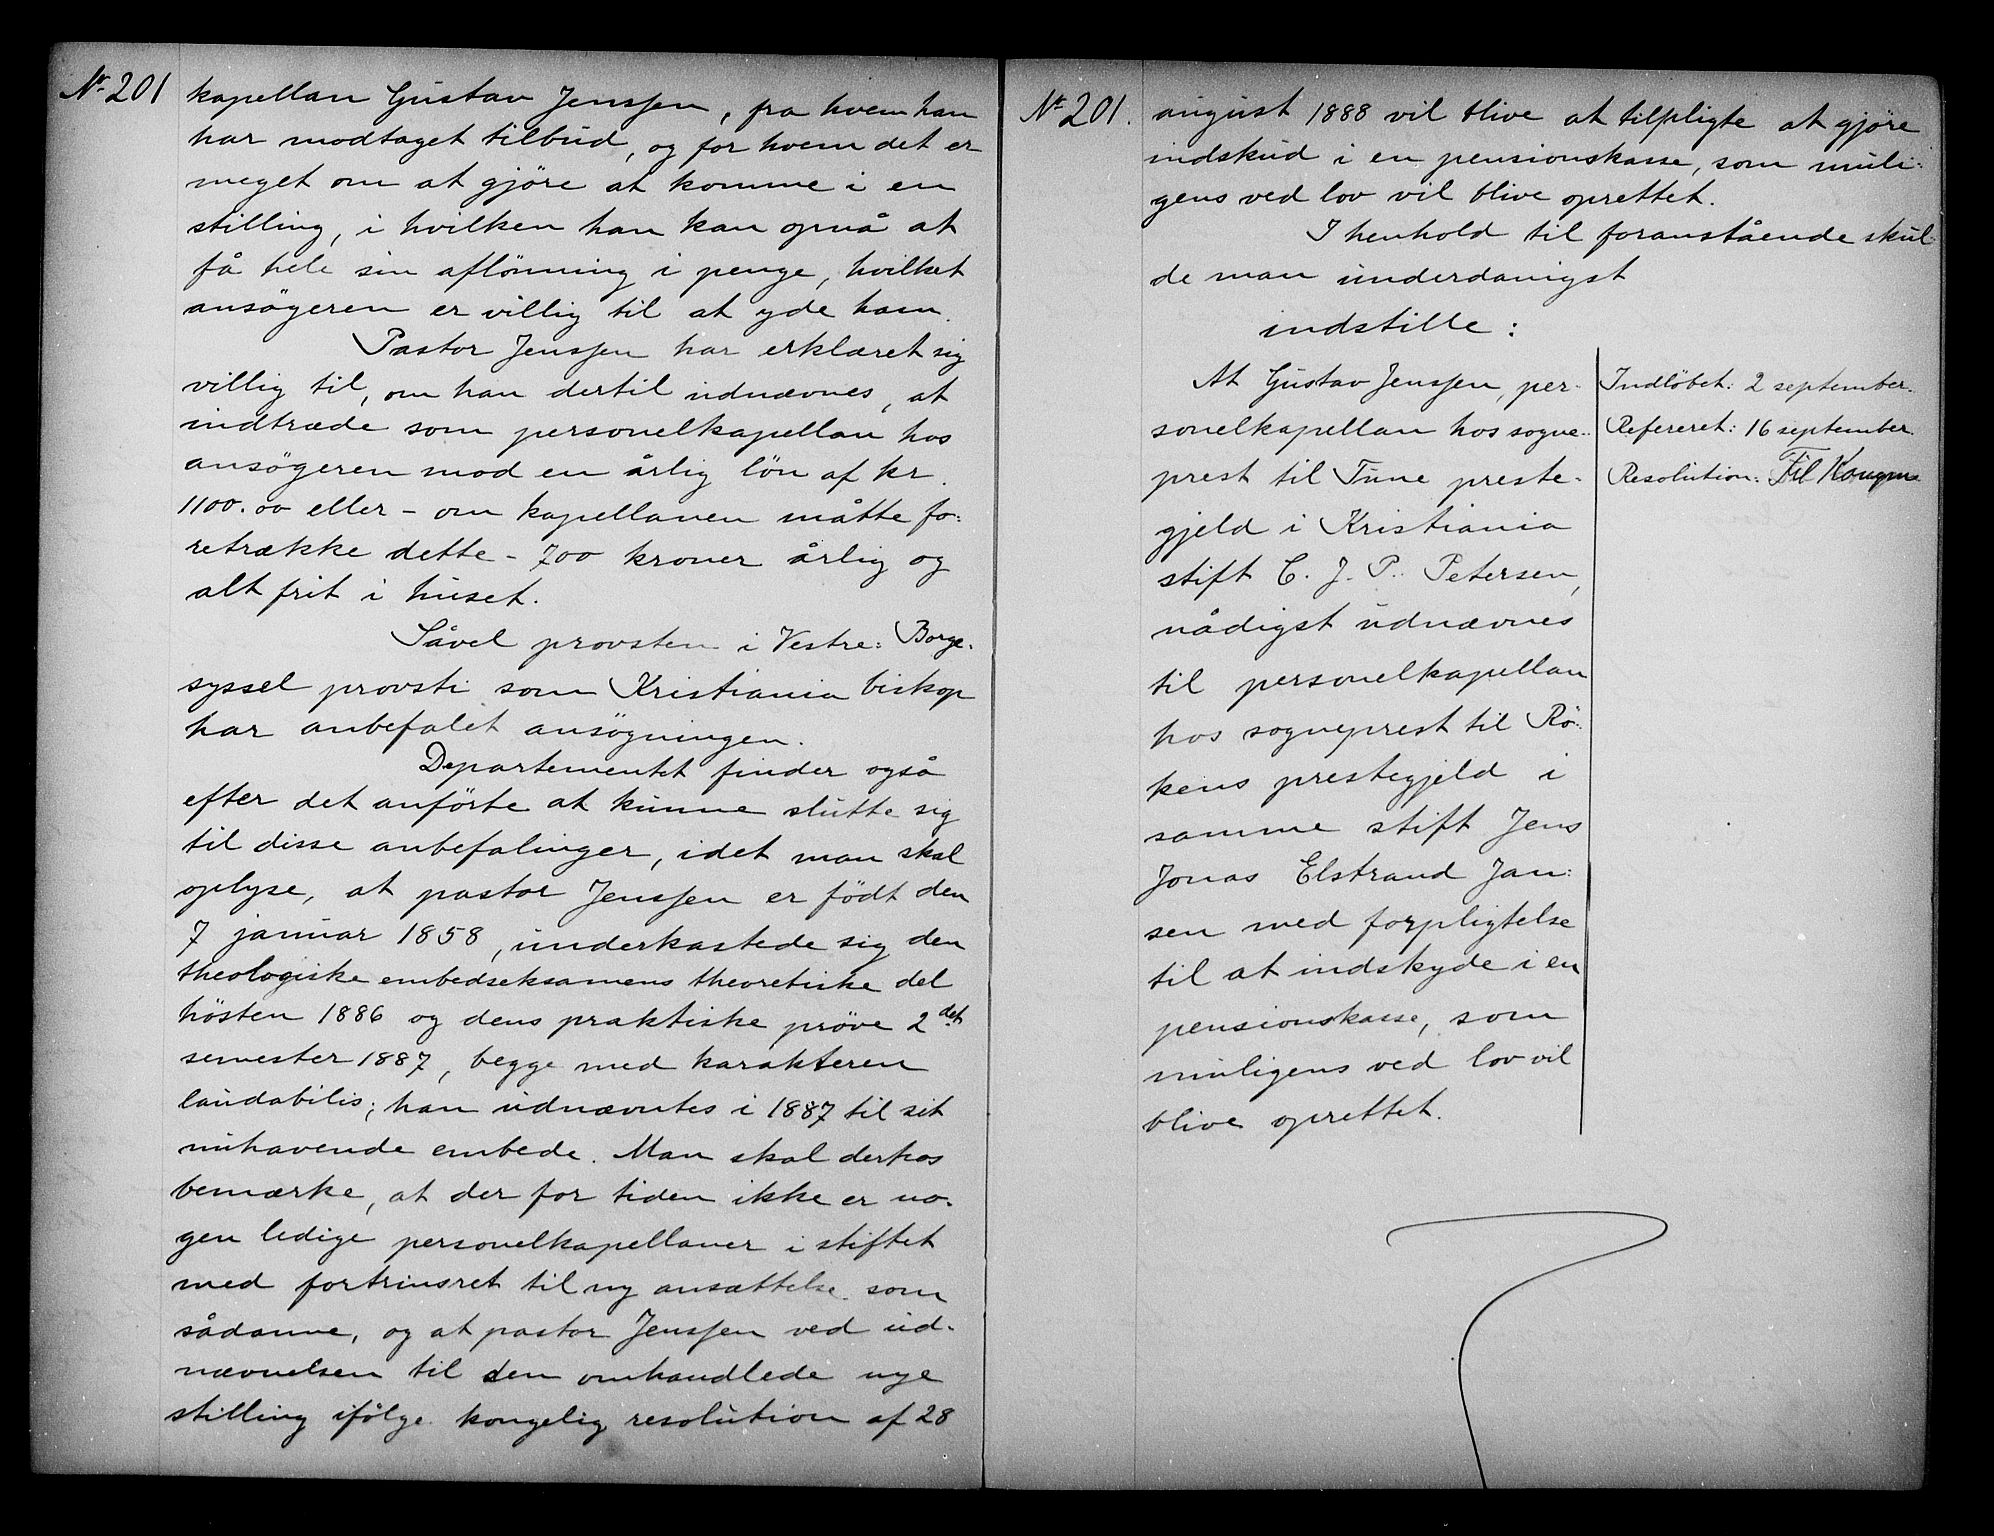 Nr 201
kapellan Gustav Jenssen, fra hvem han
har modtaget tilbud, og for hvem det er
meget om at gjöre at komme i en
stilling, i hvilken han kan opnå at
få hele sin aflönning i penge, hvilket
ansögeren er villig til at yde ham.
Pastor Jenssen har erklæret sig
villig til, om han dertil udnævnes, at
indtræde som personelkapellan hos
ansögeren mod en årlig lön af kr.
1100.00 eller - om kapellanen måtte fo:
retrække dette - 700 kroner årlig og
alt frit i huset.
Såvel provsten i Vestre: Borge.
syssel provsti som Kristiania biskop
har anbefalet ansögningen.
Departementet finder også
efter det anförte at kunne slutte sig
til disse anbefalinger, idet man skal
oplyse, at pastor Jenssen er födt den
7 januar 1858, underkastede sig den
theologiske embedseksamens theoretiske del
hösten 1886 og dens praktiske pröve 2det
semester 1887, begge med karakteren
laudabilis; han udnævntes i 1887 til sit
nuhavende embede. Man skal derhos
bemærke, at der for tiden ikke er no-
gen ledige personelkapellaner i stiftet
med fortrinsret til ny ansættelse som
sådanne, og at pastor Jenssen ved ud-
nævnelsen til den omhandlede nye
stilling ifölge kongelig resolution af 28
Nr 201.
august 1888 vil blive at tilpligte at gjöre
indskud i en pensionskasse, som muli:
gens ved lov vil blive oprettet.
I henhold til foranstående skul:
de man underdanigst
indstille:
At Gustav Jenssen, per-
sonelkapellan hos sogne-
prest til Tune preste-
gjeld i Kristiania
stift C. J. P. Petersen,
nådigst udnævnes
til personelkapellan
hos sogneprest til Rö:
kens prestegjeld i
samme stift Jens
Jonas Elstrand Jan:
sen med forpligtelse
til at indskyde i en
pensionskasse, som
muligens ved lov vil
blive oprettet.
Indlöbet: 2 september.
Refereret: 16 september.
Resolution: Til Kongen